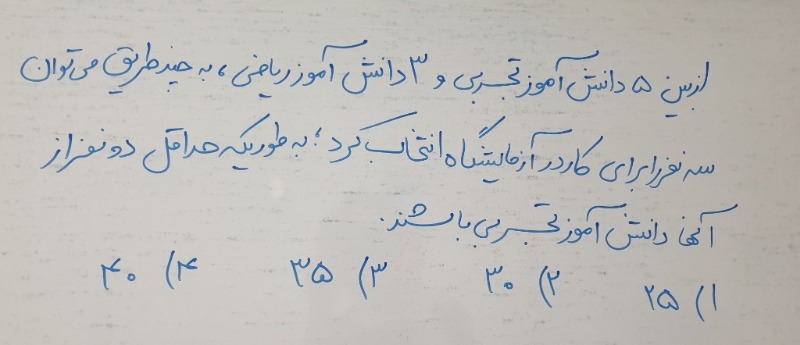 ازبین ۵ دانش آموز تجربی و ۳ دانش آموز ریاضی ، به چند طریق می توان
سه نفر را برای کار در آزمایشگاه انتخاب کرد ؛ به طوریکه حداقل دو نفر از
آنها دانش آموز تجربی باشند.
۱) ۲۵ ۲) ۳۰ ۳) ۳۵ ۴) ۴۰